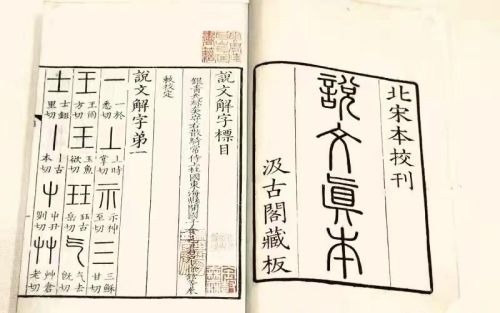 北宋本校刊
說文眞本
汲古閣藏板
說文解字標目
銀青光祿大夫守右散騎常侍上柱國東海縣開國子食邑五百戶臣徐鉉等奉
敕校定
說文解字第一
一 一於悉切
丄 上時掌切
示 示神至切
三 三穌甘切
王 王雨方切
玉 玉魚欲切
玨 玨古岳切
气 气去旣切
士 士鉏里切
丨 丨古本切
屮 屮丑切
艸 艸倉老切